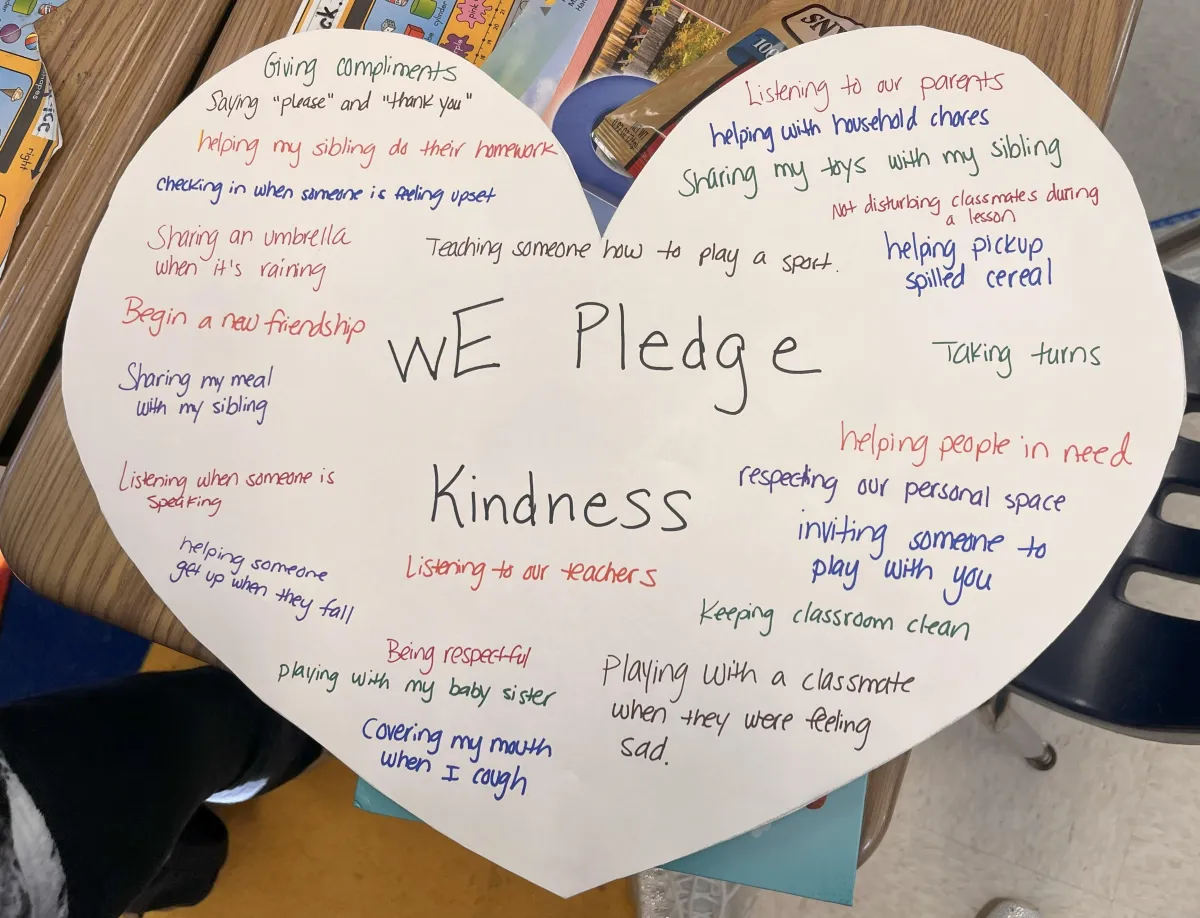 Giving compliments
Saying "please" and "thank you"
helping my sibling do their homework
checking in when someone is feeling upset
Sharing an umbrella
when it's raining
Begin a new friendship
Sharing my meal
with my sibling
Listening when someone is
speaking
helping someone
get up when they fall
Teaching someone how to play a sport.
WE Pledge
Kindness
Listening to our teachers
Being respectful
playing with my baby sister
Covering my mouth
when I cough
Listening to our parents
helping with household chores
Sharing my toys with my sibling
Not disturbing classmates during
a lesson
helping pickup
spilled cereal
Taking turns
helping people in need
respecting our personal space
inviting someone to
play with you
Keeping classroom clean
Playing with a classmate
when they were feeling
sad.
right
ice
ck.
100